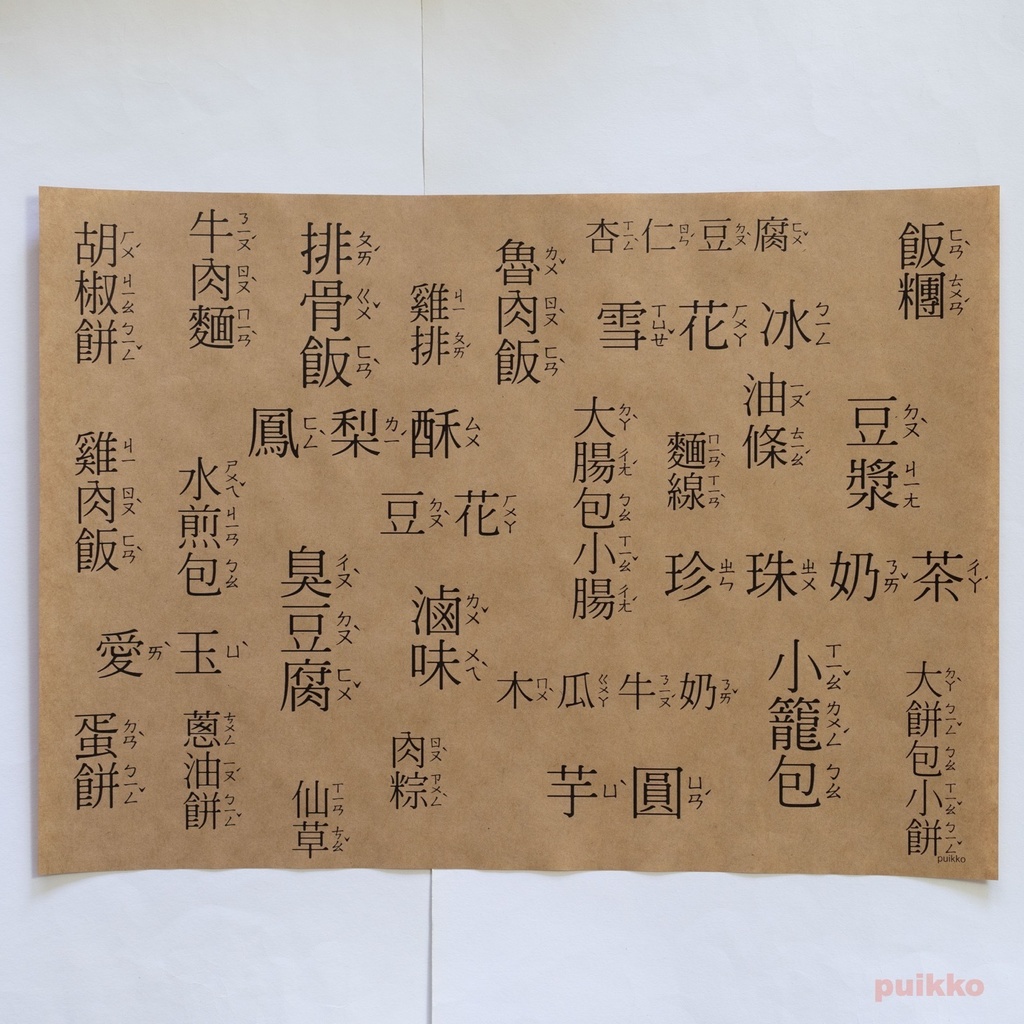 胡椒餅
牛肉麵
排骨飯
雞排
魯肉飯
杏仁豆腐
雪花冰
飯糰
鳳梨酥
大腸包小腸
麵線
油條
豆漿
雞肉飯
水煎包
豆花
臭豆腐
滷味
珍珠奶茶
愛玉
木瓜牛奶
小籠包
大餅包小餅
蛋餅
蔥油餅
仙草
肉粽
芋圓
puikko
puikko